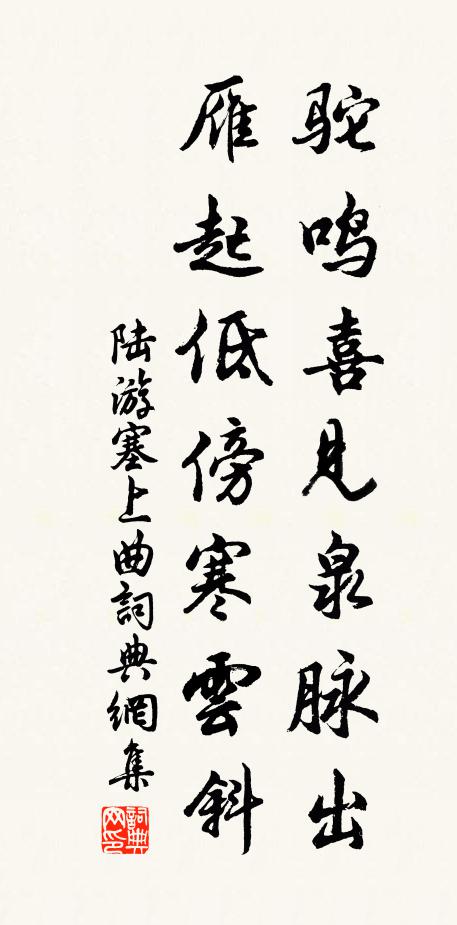 驼鸣喜见泉脉出
雁起低傍寒雲斜
陆游塞上曲詞典網集
詞典网印